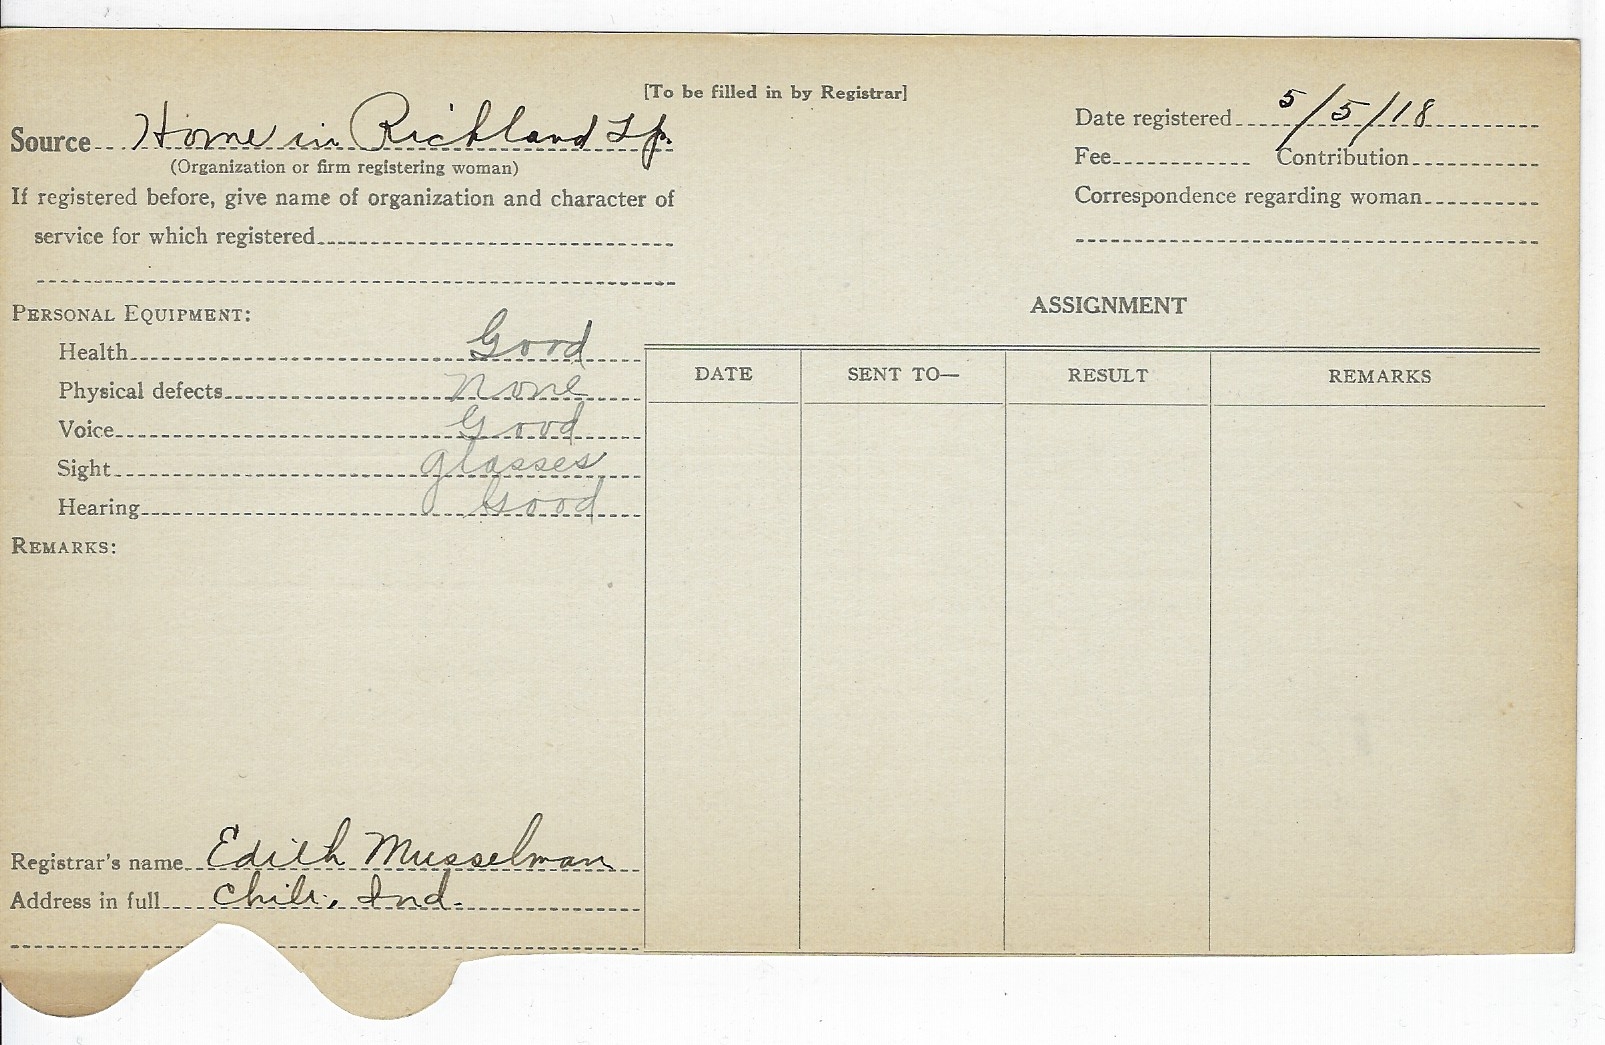 [To be filled in by Registrar]
Source Home in Richland Tp.
(Organization or firm registering woman)
If registered before, give name of organization and character of
service for which registered
Date registered 5/5/18
Fee Contribution
Correspondence regarding woman
PERSONAL EQUIPMENT:
Health Good
Physical defects None
Voice Good
Sight glasses
Hearing Good
REMARKS:
Registrar's name Edith Musselman
Address in full Chili, Ind.
ASSIGNMENT
DATE SENT TO— RESULT REMARKS